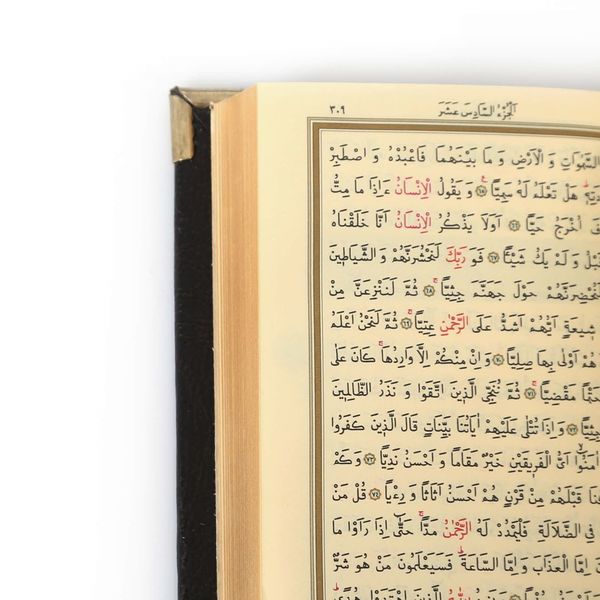 اَلْجُزْءُ السَّادِسَ عَشَرَ
٣٠٩
السَّمٰوَاتِ وَ الْاَرْضِ وَ مَا بَيْنَهُمَا فَاعْبُدْهُ وَ اصْطَبِرْ
هَلْ تَعْلَمُ لَهُ سَمِيًّا ﴿٦٥﴾ وَ يَقُولُ الْاِنْسَانُ ءَاِذَا مَا مِتُّ
فَ اُخْرَجُ حَيًّا ﴿٦٦﴾ اَوَلَا يَذْكُرُ الْاِنْسَانُ اَنَّا خَلَقْنَاهُ
قَبْلُ وَ لَمْ يَكُ شَيْئًا ﴿٦٧﴾ فَوَ رَبِّكَ لَنَحْشُرَنَّهُمْ وَ الشَّيَاطِينَ
لَنُحْضِرَنَّهُمْ حَوْلَ جَهَنَّمَ جِثِيًّا ﴿٦٨﴾ ثُمَّ لَنَنْزِعَنَّ مِنْ
شِيعَةٍ اَيُّهُمْ اَشَدُّ عَلَى الرَّحْمٰنِ عِتِيًّا ﴿٦٩﴾ ثُمَّ لَنَحْنُ اَعْلَمُ
هُمْ اَوْلٰى بِهَا صِلِيًّا ﴿٧٠﴾ وَ اِنْ مِنْكُمْ اِلَّا وَارِدُهَا كَانَ عَلٰى
حَتْمًا مَقْضِيًّا ﴿٧١﴾ ثُمَّ نُنَجِّي الَّذِينَ اتَّقَوْا وَ نَذَرُ الظَّالِمِينَ
جِثِيًّا ﴿٧٢﴾ وَ اِذَا تُتْلٰى عَلَيْهِمْ اٰيَاتُنَا بَيِّنَاتٍ قَالَ الَّذِينَ كَفَرُوا
اٰمَنُوا اَيُّ الْفَرِيقَيْنِ خَيْرٌ مَقَامًا وَ اَحْسَنُ نَدِيًّا ﴿٧٣﴾ وَ كَمْ
قَبْلَهُمْ مِنْ قَرْنٍ هُمْ اَحْسَنُ اَثَاثًا وَ رِءْيًا ﴿٧٤﴾ قُلْ مَنْ
فِي الضَّلَالَةِ فَلْيَمْدُدْ لَهُ الرَّحْمٰنُ مَدًّا حَتّٰى اِذَا رَاَوْا مَا
اِمَّا الْعَذَابَ وَ اِمَّا السَّاعَةَ فَسَيَعْلَمُونَ مَنْ هُوَ شَرٌّ